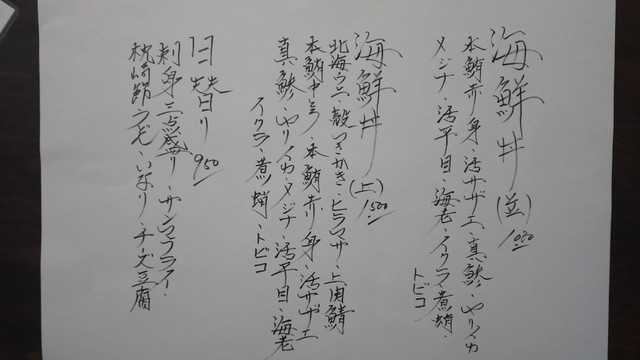 海鮮丼(並)1050
本鮪赤身・活サザエ・真鯵・ヤリイカ
メジナ・活平目・海老・イクラ・煮蛸・
トビコ
海鮮丼(上)1500
北海ウニ・殻つきかき・ヒラマサ・上〆鯖
本鮪中とろ・本鮪赤身・活サザエ
真鯵・ヤリイカ・メジナ・活平目・海老
イクラ・煮蛸・トビコ
日替り 950
刺身三点盛り・サンマフライ・
枕崎節うどん・いなり・チーズ豆腐